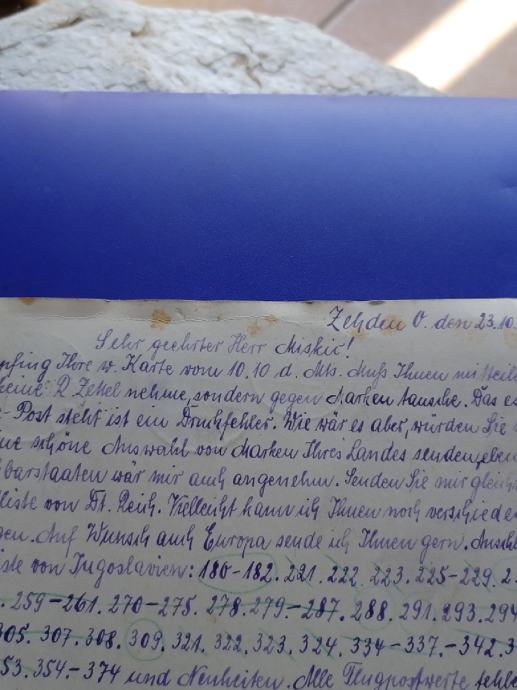 Zehden O. den 23.10.
Sehr geehrter Herr Miskić!
pfing Ihre w. Karte vom 10.10 d. Mts. Muß Ihnen mitteile
keine R Zettel nehme, sondern gegen Marken tausche. Das es
-Post steht ist ein Druckfehler. Wie wär es aber, würden Sie
eine schöne Auswahl von Marken Ihres Landes senden, eben
hbarstaaten wär mir auch angenehm. Senden Sie mir gleich
lliste von Dt. Reich. Vielleicht kann ich Ihnen noch verschiede
gen. Auf Wunsch auch Europa sende ich Ihnen gern. Anschl
iste von Jugoslavien: 180-182. 221. 222. 223. 225-229. 2
. 259-261. 270-275. 278. 279.-287. 288. 291. 293. 294
305. 307. 308. 309. 321. 322. 323. 324. 334-337.-342. 3
53. 354.-374 und Neuheiten. Alle Flugpostwerte fehle